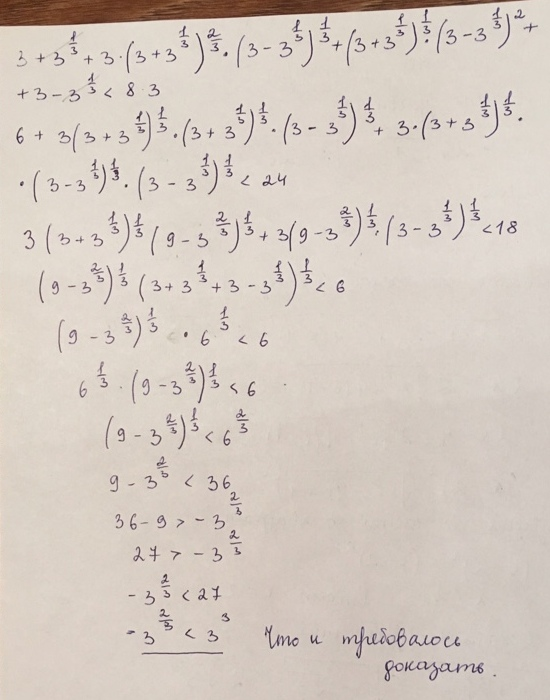 3 + 3^{1/3} + 3·(3 + 3^{1/3})^{2/3}·(3 - 3^{1/3})^{1/3} + (3 + 3^{1/3})^{1/3}·(3 - 3^{1/3})^2 +
+ 3 - 3^{1/3} < 8·3
6 + 3(3 + 3^{1/3})^{1/3}·(3 + 3^{1/3})^{1/3}·(3 - 3^{1/3})^{1/3} + 3·(3 + 3^{1/3})^{1/3}·
·(3 - 3^{1/3})^{1/3}·(3 - 3^{1/3})^{1/3} < 24
3(3 + 3^{1/3})^{1/3}(9 - 3^{2/3})^{1/3} + 3(9 - 3^{2/3})^{1/3}·(3 - 3^{1/3})^{1/3} < 18
(9 - 3^{2/3})^{1/3}(3 + 3^{1/3} + 3 - 3^{1/3})^{1/3} < 6
(9 - 3^{2/3})^{1/3}·6^{1/3} < 6
6^{1/3}·(9 - 3^{2/3})^{1/3} < 6
(9 - 3^{2/3})^{1/3} < 6^{2/3}
9 - 3^{2/3} < 36
36 - 9 > - 3^{2/3}
27 > - 3^{2/3}
- 3^{2/3} < 27
- 3^{2/3} < 3^3
Что и требовалось
доказать.